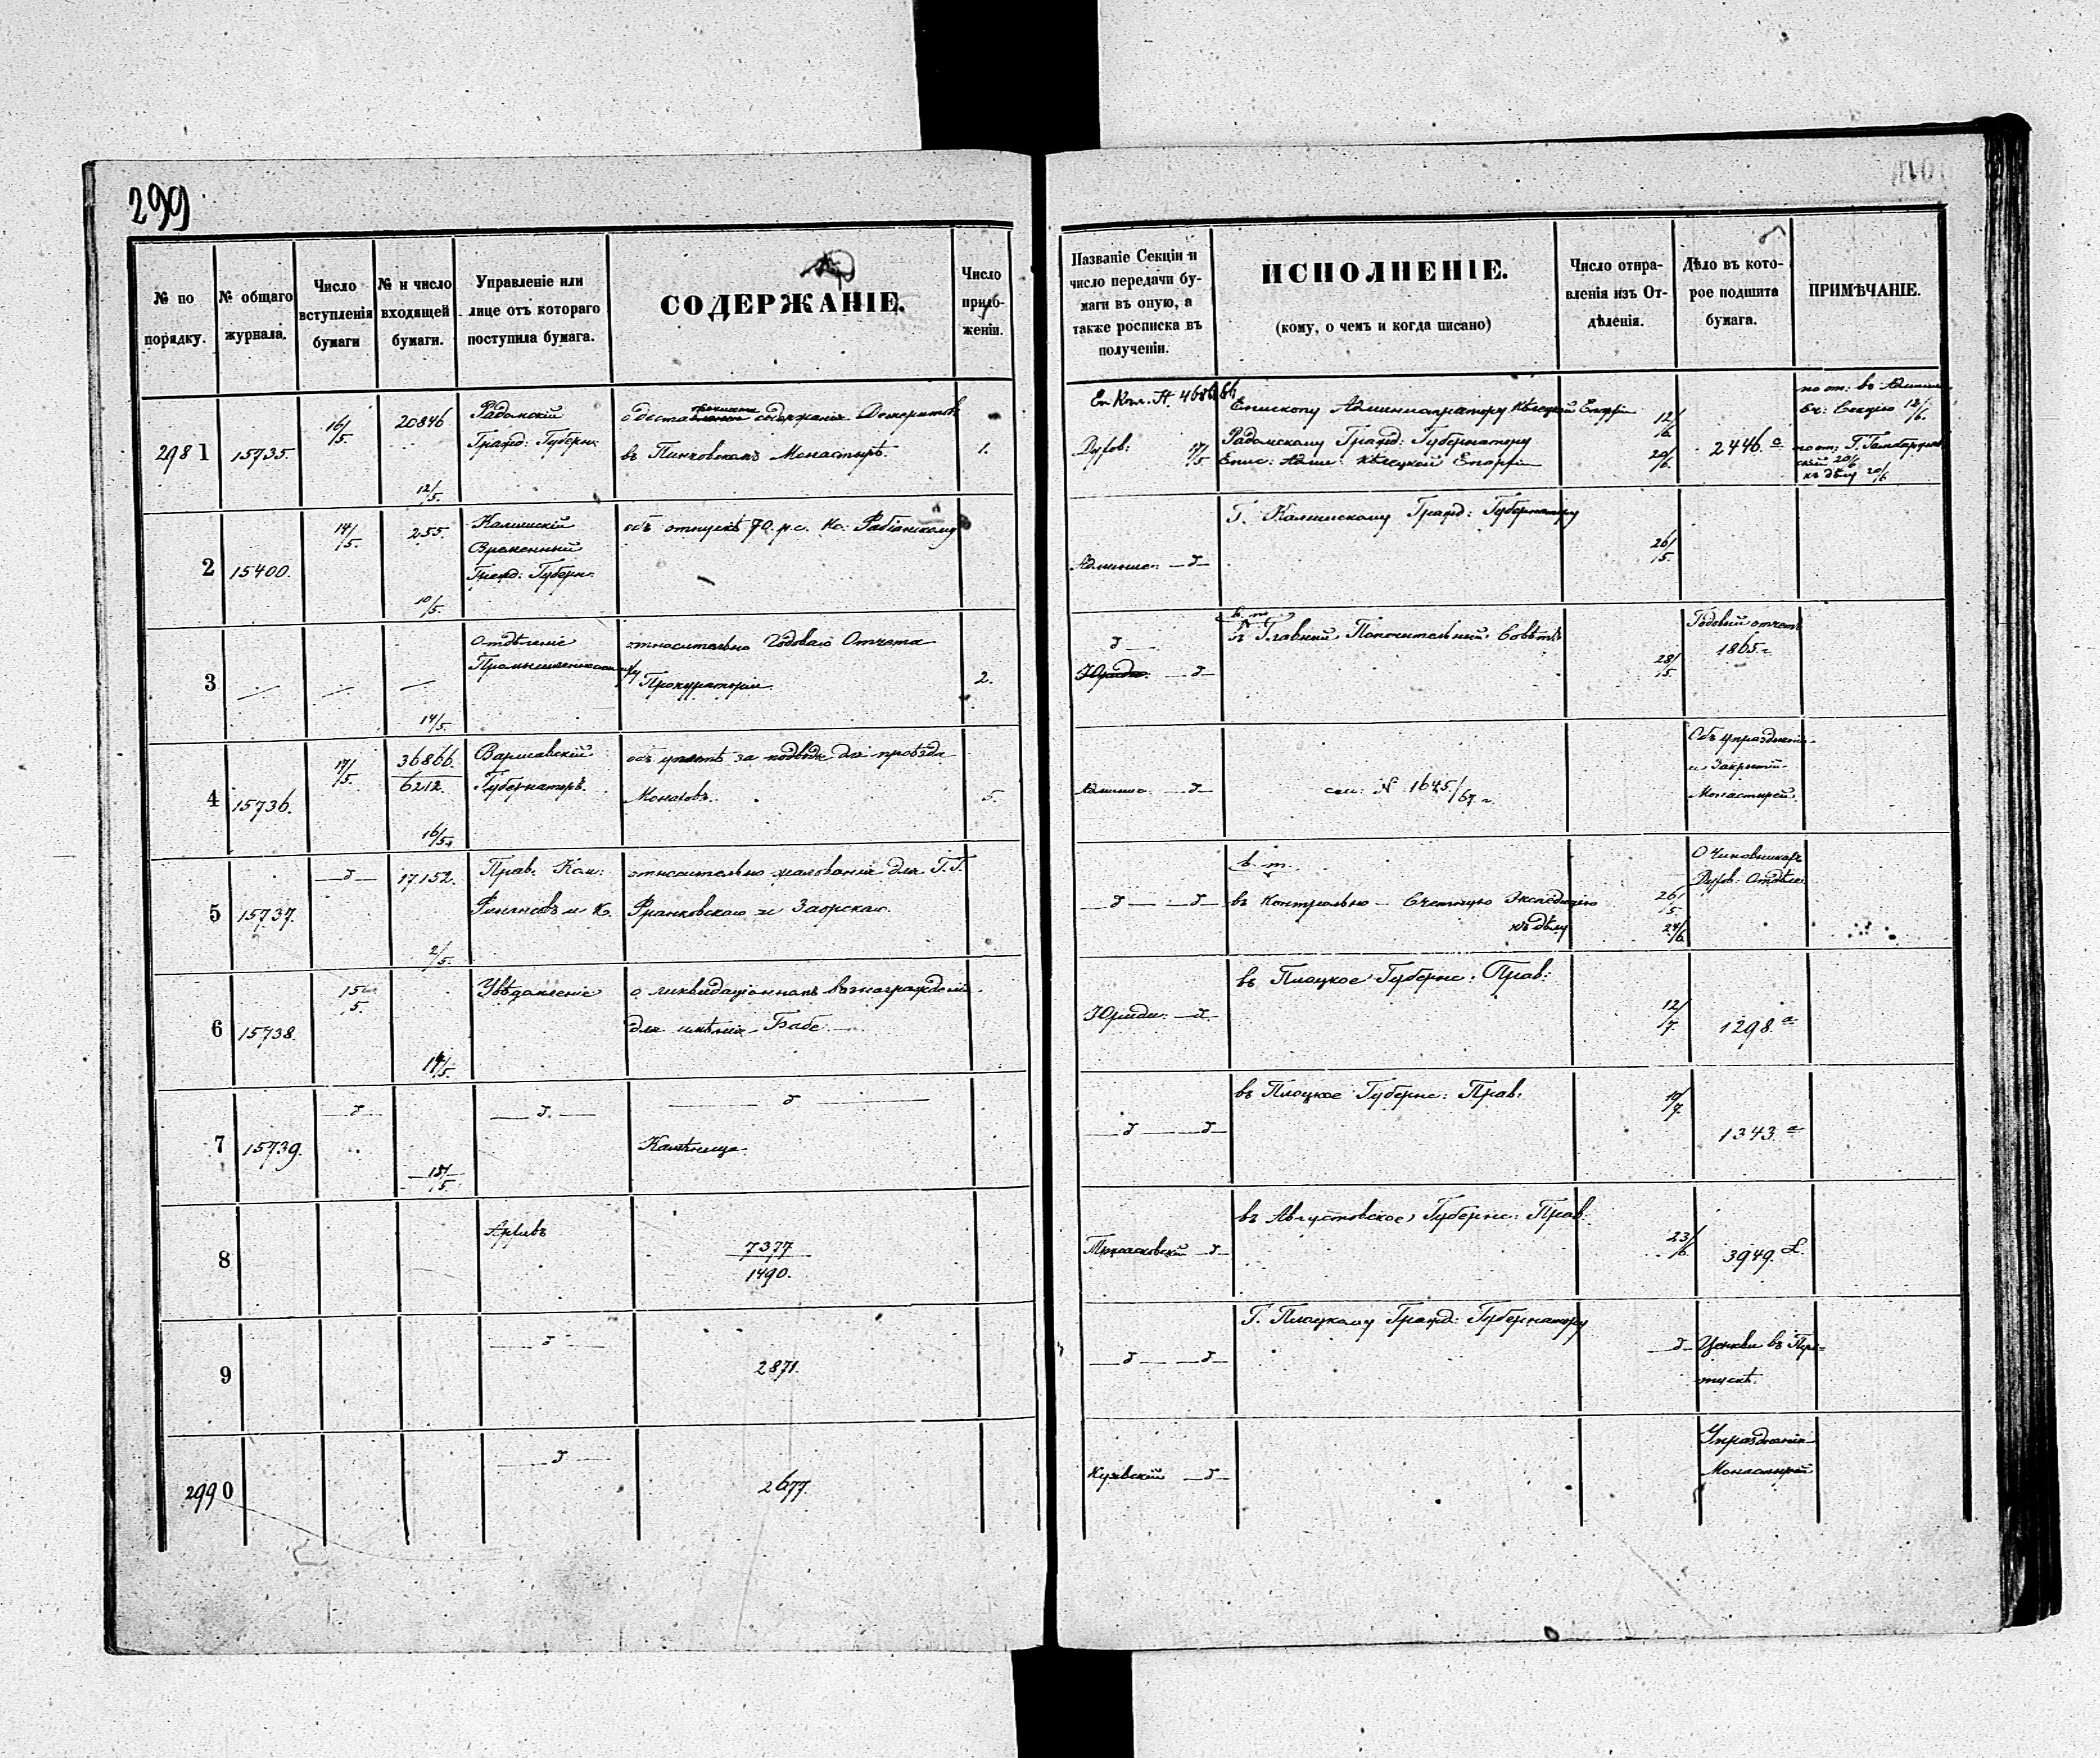 299
№ по порядку.
№ общаго журнала.
Число вступленія бумаги
№ и число входящей бумаги.
Управленіе или лице отъ котораго поступила бумага.
СОДЕРЖАНІЕ.
Число приложеніи.
Названіе Секціи и число передачи бумаги въ оную, а также росписка въ полученіи.
ИСПОЛНЕНІЕ.
(кому, о чемъ и когда писано)
Число отправленія изъ Отдѣленія.
Дѣло въ которое подшита бумага.
ПРИМѢЧАНІЕ.
2981
15735
16/5.
20846
12/5.
Радомскій
Гражд: Губерн:
содержанія Демеритовъ
въ Пинчовскомъ Монастырѣ.
1.
Духов: 17/5.
Епископу Администратору Кѣлецкой Епархіи
Радомскому Гражд: Губернатору
Епис: Адми: Кѣлецкой Епархіи
12/6.
20/6.
2446. a
2
15400.
14/5.
255.
10/5.
Калишскій
Временный
Гражд: Губерн.
объ отпускѣ 70. р.с. Кс:
Админис: —d—
Г. Калишскому Гражд: Губернатору
26/5.
3
14/5.
Отдѣленіе
Промышленности
относительно Годоваго Отчета
Прокураторіи.
2.
d
Юриди: —d—
в. т.
Главный Попечительный Совѣтъ
28/5.
Годовый отчетъ
1865.
4
15736.
17/5.
36866.
6212.
16/5.
Варшавскій
Губернаторъ.
объ уплатѣ за подводы для проѣзда
Монаховъ.
5.
Админис: —d—
см: № 1645/67.
Объ упраздненіи
и Закрытій
Монастырей.
5
15737.
—d—
17152.
2/5.
Прав. Ком:
Финансовъ и К.
относительно жалованія для Г.Г.
Франковскаго и Заорскаго.
—d— —d—
в. т.
въ Контрольно - Счетную Экспедицію
къ дѣлу
26/5.
24/6.
О Чиновникахъ
Духов: Отдѣле
6
15738.
15/5.
14/5.
Увѣдомленіе
о ликвидаціонномъ вознагражденіи
для имѣнія Бабе.
Юриди: —d.
въ Плоцкое Губернс: Прав:
12/7.
1298. a
7
15739.
—d—
18/5.
—d.—
—d—
—d— —d—
въ Плоцкое Губернс: Прав.
10/7.
1343. a
8
Архивъ
7377
1490.
въ Августовское Губернс: Прав:
23/6.
3949.
9
—d—
2871.
—d— —d—
Г. Плоцкому Гражд: Губернатору
—d—
Церкви въ
2990
—d—
2677.
—d—
Упраздненіе
Монастырей